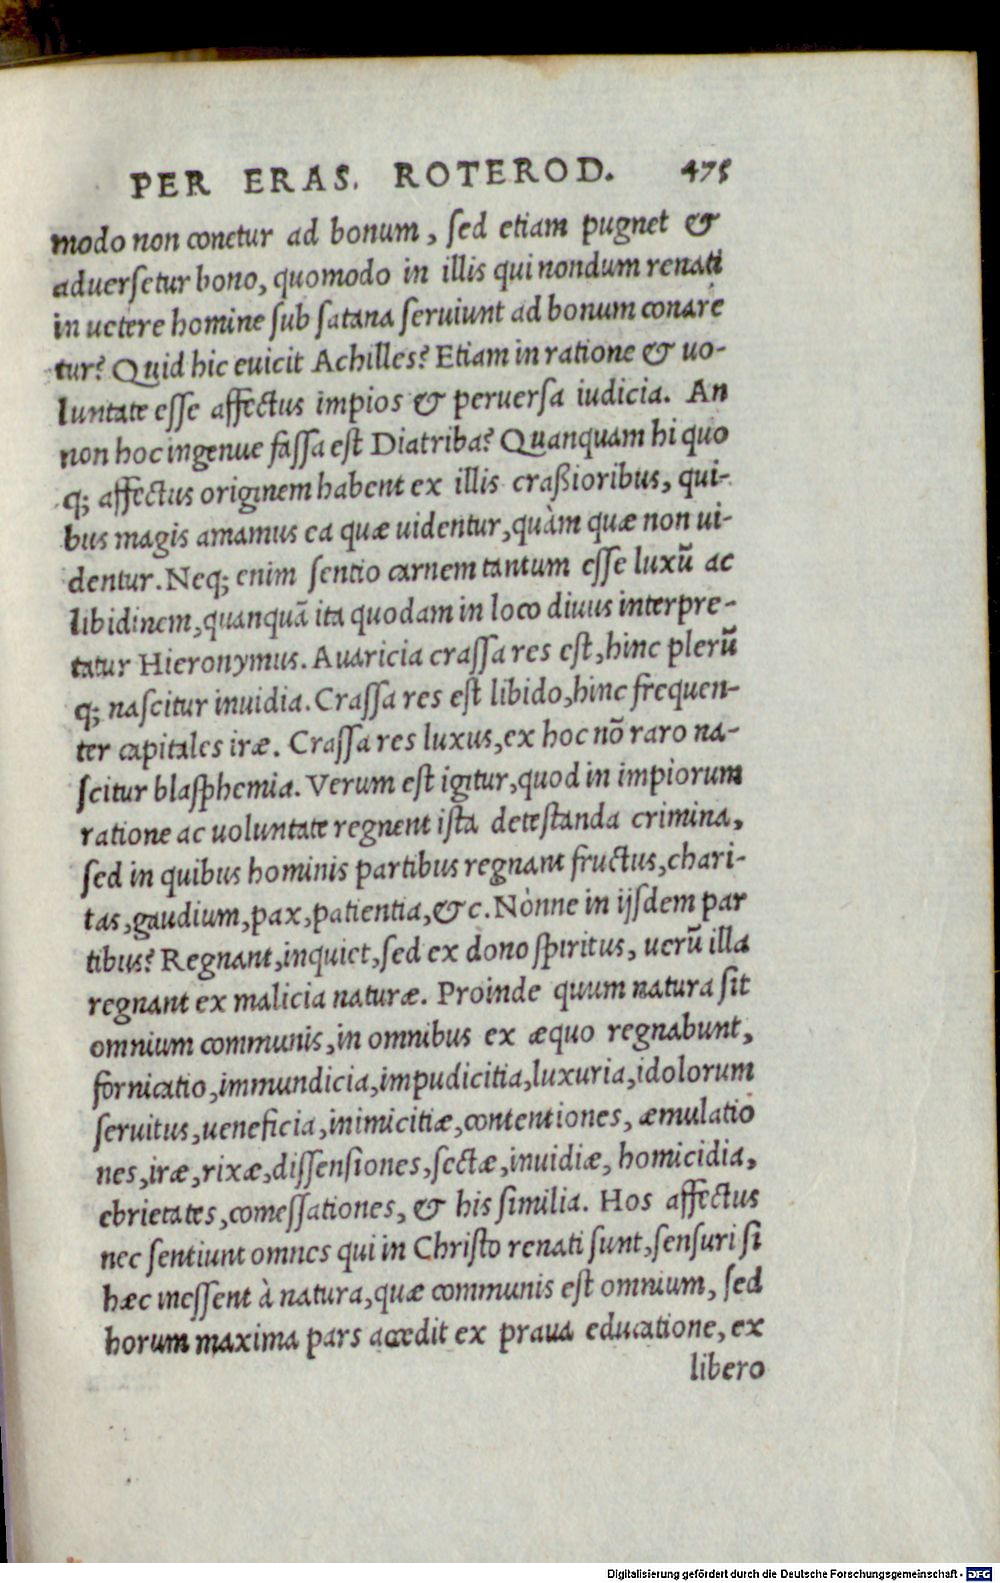 PER ERAS. ROTEROD. 475
modo non conetur ad bonum, sed etiam pugnet &
aduersetur bono, quomodo in illis qui nondum renati
in uetere homine sub satana seruiunt ad bonum conare
tur? Quid hic euicit Achilles? Etiam in ratione & uo-
luntate esse affectus impios & peruersa iudicia. An
non hoc ingenue fassa est Diatriba? Quanquam hi quo
q; affectus originem habent ex illis craßioribus, qui-
bus magis amamus ea quæ uidentur, quàm quæ non ui-
dentur. Neq; enim sentio carnem tantum esse luxũ ac
libidinem, quanquã ita quodam in loco diuus interpre-
tatur Hieronymus. Auaricia crassa res est, hinc plerũ
q; nascitur inuidia. Crassa res est libido, hinc frequen-
ter capitales iræ. Crassa res luxus, ex hoc nõ raro na-
scitur blasphemia. Verum est igitur, quod in impiorum
ratione ac uoluntate regnent ista detestanda crimina,
sed in quibus hominis partibus regnant fructus, chari-
tas, gaudium, pax, patientia, &c. Nònne in ijsdem par
tibus? Regnant, inquiet, sed ex dono spiritus, uerũ illa
regnant ex malicia naturæ. Proinde quum natura sit
omnium communis, in omnibus ex æquo regnabunt,
fornicatio, immundicia, impudicitia, luxuria, idolorum
seruitus, ueneficia, inimicitiæ, contentiones, æmulatio
nes, iræ, rixæ, dissensiones, sectæ, inuidiæ, homicidia,
ebrietates, comessationes, & his similia. Hos affectus
nec sentiunt omnes qui in Christo renati sunt, sensuri si
hæc inessent à natura, quæ communis est omnium, sed
horum maxima pars accedit ex praua educatione, ex
libero
Digitalisierung gefördert durch die Deutsche Forschungsgemeinschaft - DFG